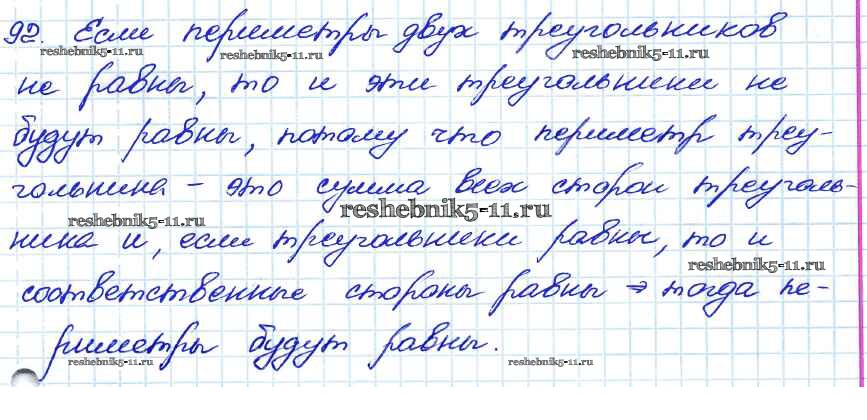 92. Если периметры двух треугольников
reshebnik5-11.ru reshebnik5-11.ru
не равны, то и эти треугольники не
будут равны, потому что периметр треу-
гольника – это сумма всех сторон треуголь-
reshebnik5-11.ru reshebnik5-11.ru
ника и, если треугольники равны, то и
reshebnik5-11.ru
соответственные стороны равны ⇒ тогда пе-
риметры будут равны.
reshebnik5-11.ru reshebnik5-11.ru